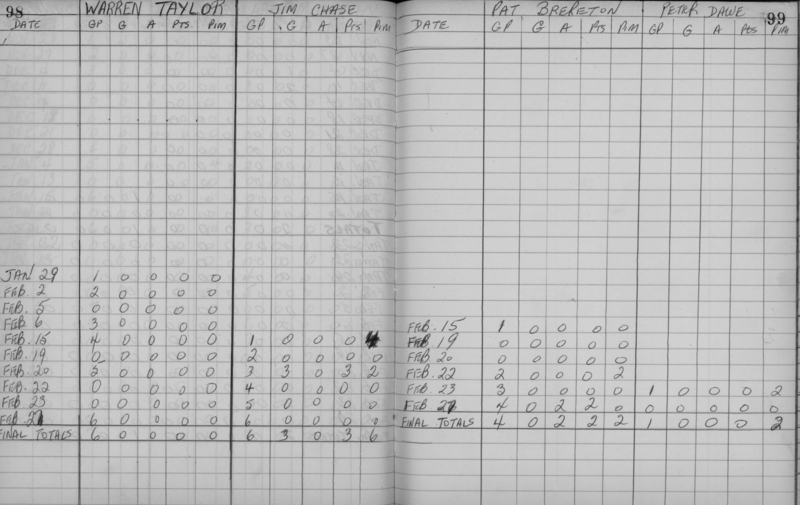 98 WARREN TAYLOR JIM CHASE
DATE GP G A PTS. PIM GP G A Pts PIM
JAN 29 1 0 0 0 0
FEB 2 2 0 0 0 0
FEB. 5 0 0 0 0 0
FEB 6 3 0 0 0 0
FEB. 15 4 0 0 0 0 1 0 0 0 4
FEB. 19 0 0 0 0 0 2 0 0 0 0
FEB. 20 5 0 0 0 0 3 3 0 3 2
FEB. 22 0 0 0 0 0 4 0 0 0 0
FEB 23 0 0 0 0 0 5 0 0 0 0
FEB. 27 6 0 0 0 0 6 0 0 0 0
FINAL TOTALS 6 0 0 0 0 6 3 0 3 6
PAT BRERETON PETER DAWE 99
DATE GP G A Pts PIM GP G A Pts PIM
FEB. 15 1 0 0 0 0
FEB 19 0 0 0 0 0
FEB. 20 0 0 0 0 0
FEB. 22 2 0 0 0 2
FEB. 23 3 0 0 0 0 1 0 0 0 2
FEB 27 4 0 2 2 0 0 0 0 0 0
FINAL TOTALS 4 0 2 2 2 1 0 0 0 2